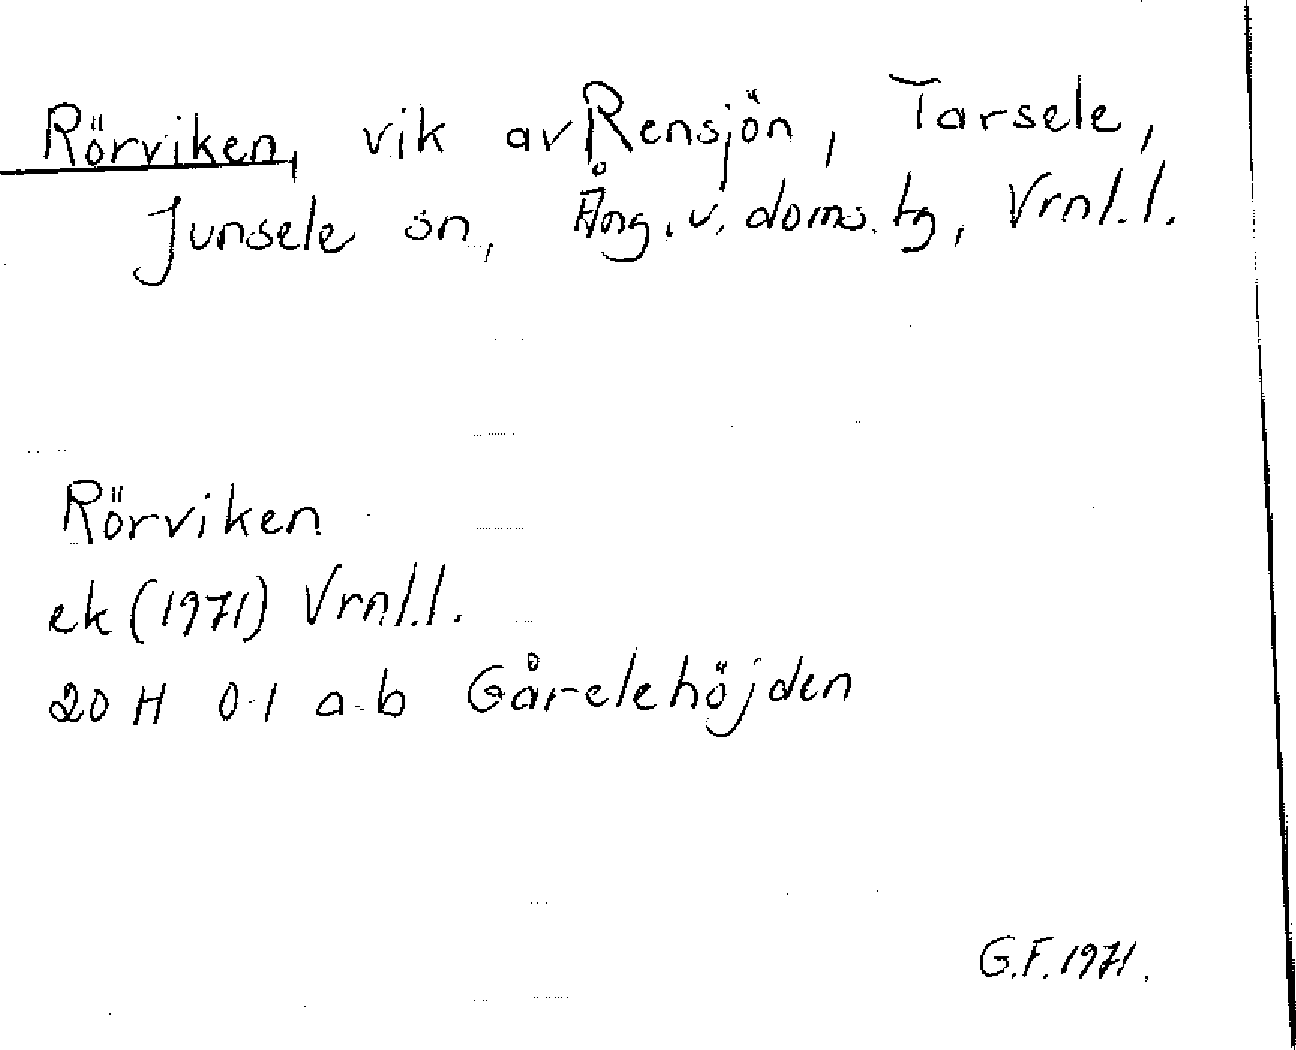 Rörviken, vik av Rensjön, Tarsele,
Junsele sn, Ång. v. doms. tg, Vrnl. l.
Rörviken
ek (1971) Vrnl. l.
20 H 0-1 a-b Gårelehöjden
G.F. 1971.